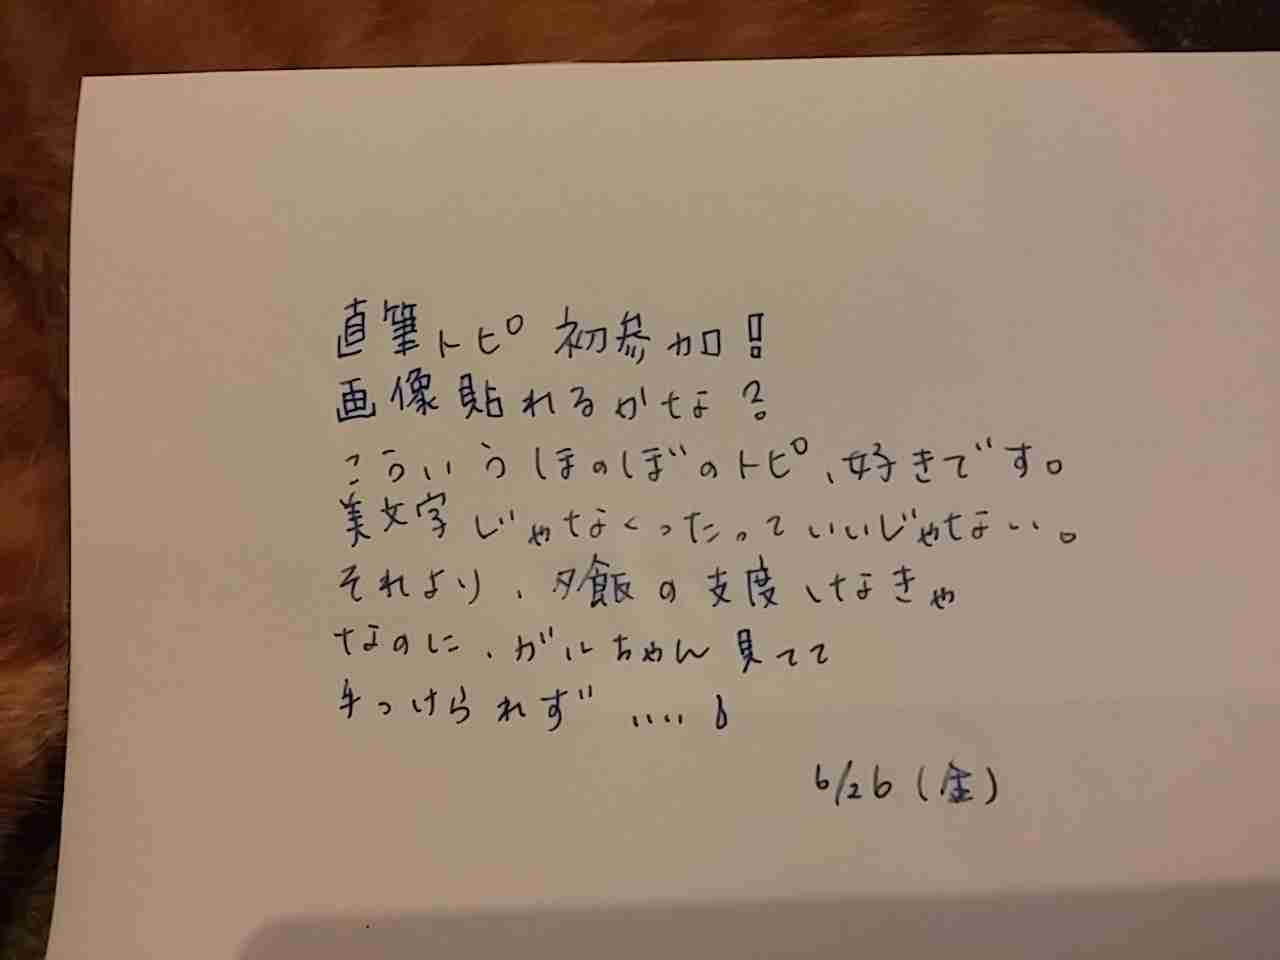 直筆トピ初参加!
画像貼れるかな?
こういうほのぼのトピ、好きです。
美文字じゃなくったっていいじゃない。
それより、夕飯の支度しなきゃ
なのに、ガルちゃん見てて
手つけられず‥‥
6/26(金)